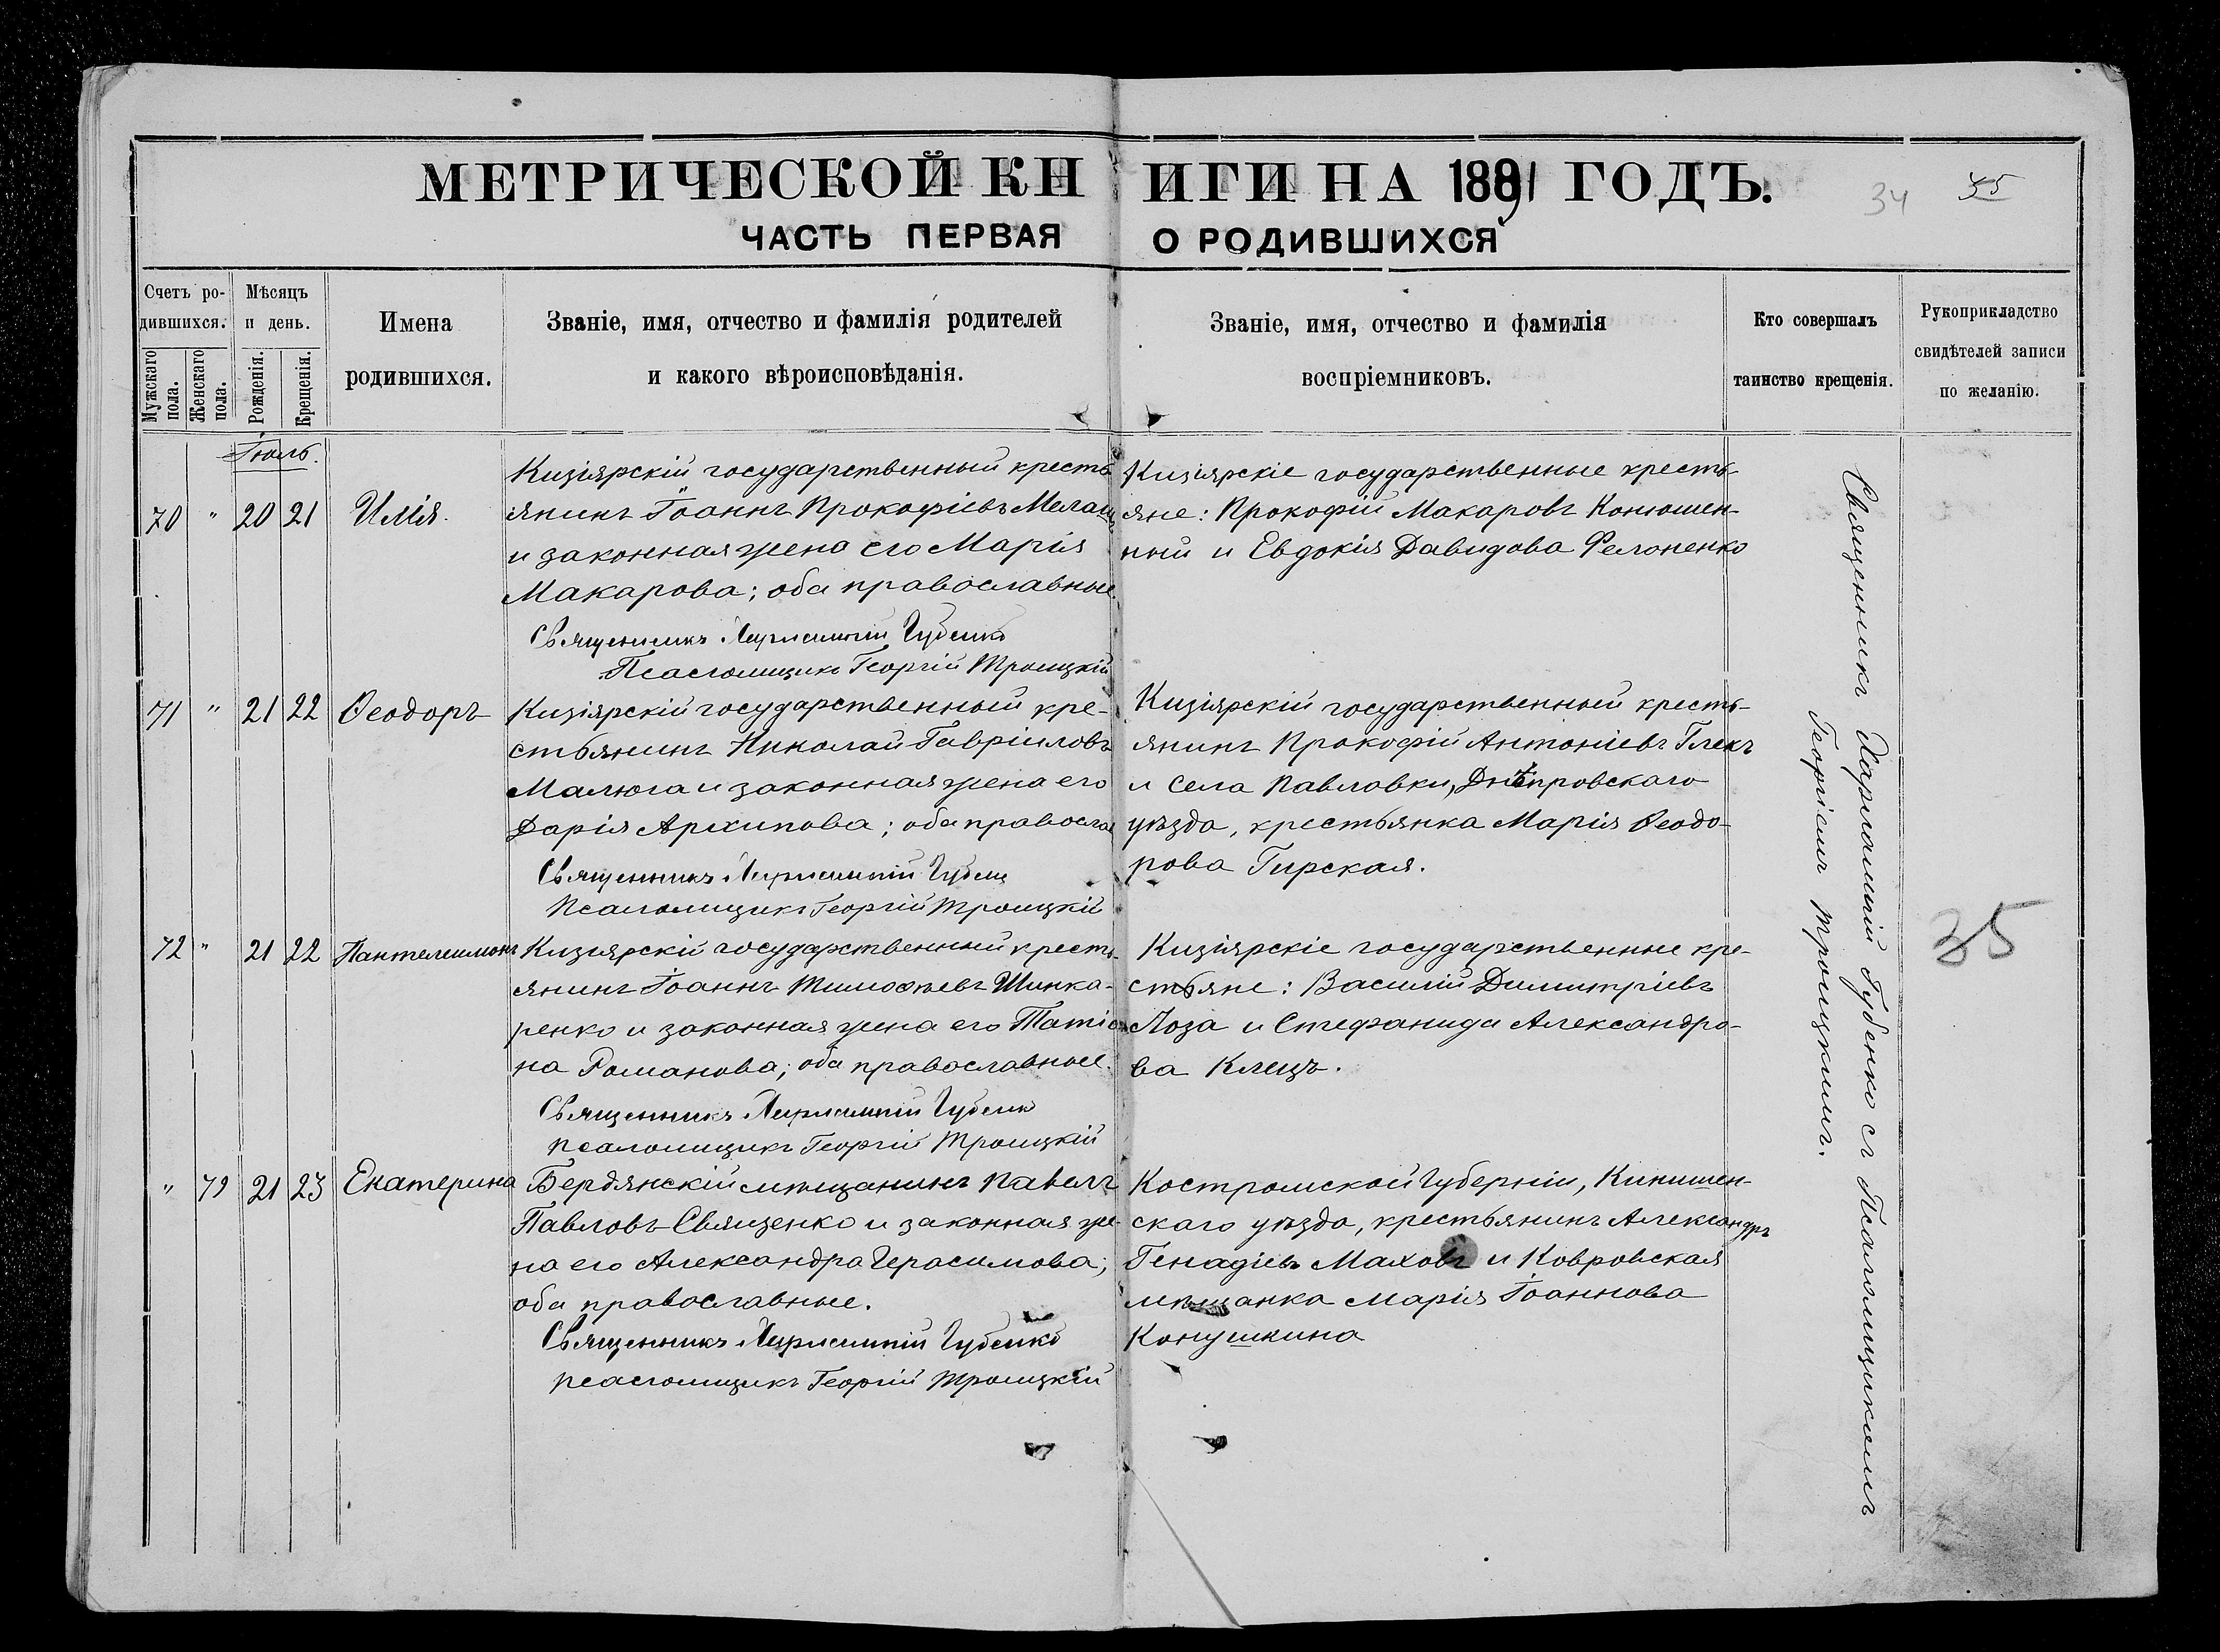 МЕТРИЧЕСКОЙ КНИГИ НА 1891 ГОДЪ.
34 35
ЧАСТЬ ПЕРВАЯ О РОДИВШИХСЯ
Счетъ родившихся.
Мужскаго пола.
Женскаго пола.
Мѣсяцъ и день.
Рожденія.
Крещенія.
Имена
родившихся.
Званіе, имя, отчество и фамилія родителей
и какого вѣроисповѣданія.
Званіе, имя, отчество и фамилія
воспріемниковъ.
Кто совершалъ
таинство крещенія.
Рукоприкладство
свидѣтелей записи
по желанію.
Іюль.
70 " 20 21 Илія.
Кизіярскій государственный кресть-
янинъ Іоаннъ Прокофіевъ
и законная жена его Марія
Макарова; оба православные.
Священникъ Харлампій Губенко
Псаломщикъ Георгій Троицкій
Кизіярскіе государственные кресть-
яне: Прокофій Макаровъ Конюшен-
ный и Евдокія Давидова Фелоненко
71 " 21 22 Ѳеодоръ
Кизіярскій государственный кре-
стьянинъ Николай Гавріиловъ
Малюга и законная жена его
Дарія Архипова; оба правосла
Священникъ Харлампій Губенко
Псаломщикъ Георгій Троицкій
Кизіярскій государственный кресть-
янинъ Прокофій Антоніевъ Глекъ
и села Павловки, Днѣпровскаго
уѣзда, крестьянка Марія Ѳеодо-
рова Гирская.
72 " 21 22 Пантелеимонъ
Кизіярскій государственный кресть-
янинъ Іоаннъ Тимоѳѣевъ Шинка-
ренко и законная жена его Татіа-
на Романова; оба православные.
Священникъ Харлампій Губенко
Псаломщикъ Георгій Троицкій
Кизіярскіе государственные кре-
стьяне: Василій Димитріевъ
Лоза и Стефанида Александро-
ва Клецъ.
" 79 21 23 Екатерина
Бердянскій мѣщанинъ Павелъ
Павловъ Священко и законная же-
на его Александра Герасимова;
оба православные.
Священникъ Харлампій Губенко
Псаломщикъ Георгій Троицкій
Костромской Губерніи, Кинишен-
скаго уѣзда, крестьянинъ Александръ
Генадіевъ Маховъ и Ковровская
мѣщанка Марія Іоаннова
Конушкина
Священникъ Харлампій Губенко съ Псаломщикомъ
Георгіемъ Троицкимъ.
35